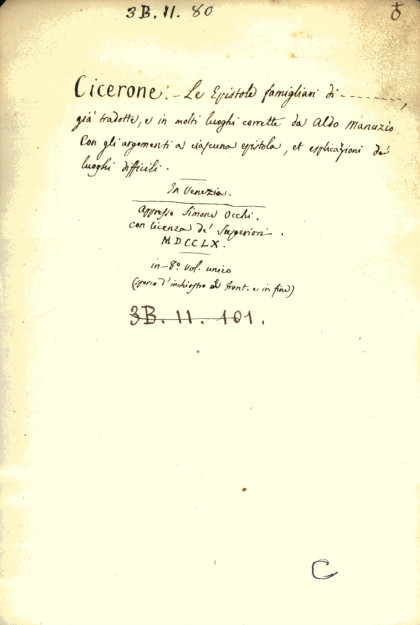 3B. 11. 80
Cicerone: - Le Epistole famigliari di - - - - - - - - ,
già tradotte, e in molti luoghi corrette da Aldo Manuzio
Con gli argomenti a ciascuna epistola, et esplicazioni de'
luoghi difficili.
In Venezia.
Appresso Simone Occhi.
con licenza de' Superiori.
MDCCLX.
in-8º vol. unico
(sporco d'inchiostro front. e in fine)
3B. 11. 101.
C